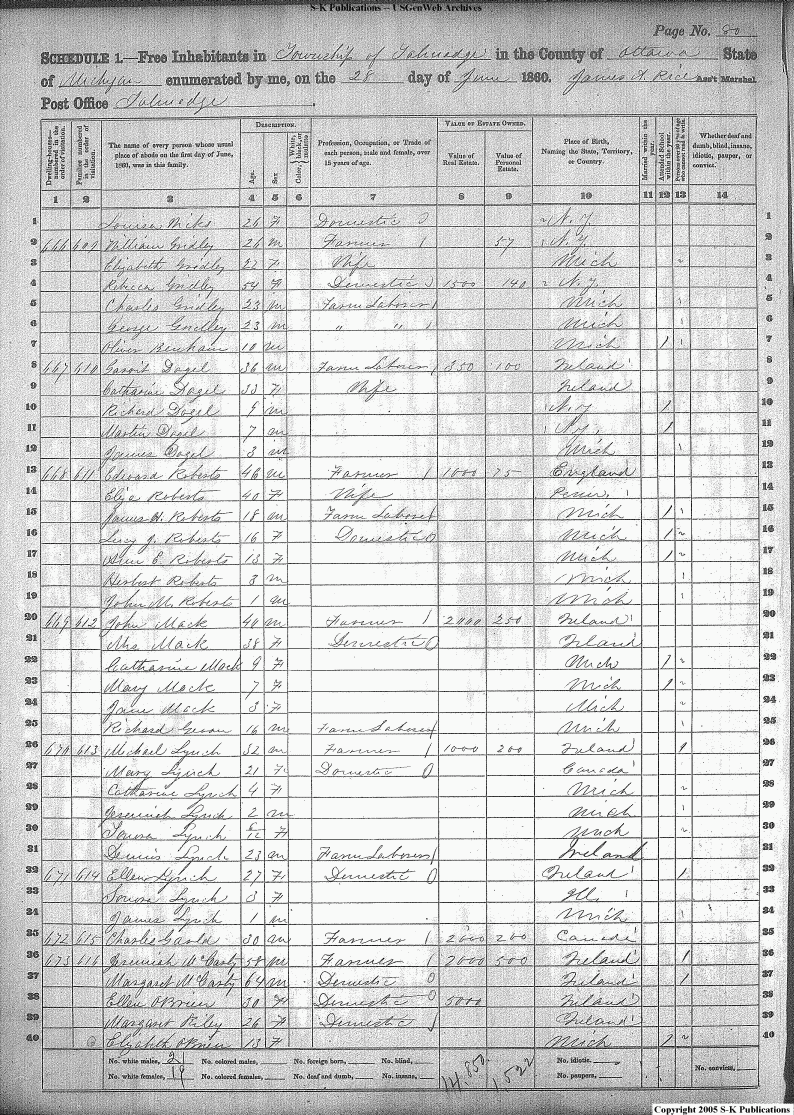 S-K Publications – USGenWeb Archives
Page No. 80
SCHEDULE 1.—Free Inhabitants in Township of Talmadge in the County of Ottawa State
of Michigan enumerated by me, on the 28 day of June 1860. James A. Rice Ass't Marshal
Post Office Talmadge.
Dwelling-houses—numbered in the order of visitation. Families numbered in the order of visitation. The name of every person whose usual place of abode on the first day of June, 1860, was in this family. DESCRIPTION. Age. Sex. Color, White, black, or mulatto. Profession, Occupation, or Trade of each person, male and female, over 15 years of age. VALUE OF ESTATE OWNED. Value of Real Estate. Value of Personal Estate. Place of Birth, Naming the State, Territory, or Country. Married within the year. Attended School within the year. Whether deaf and dumb, blind, insane, idiotic, pauper, or convict.
1 2 3 4 5 6 7 8 9 10 11 12 13 14
1 Louisa 26 F Domestic 0 N.Y. 1
2 666 609 William Gridley 26 m Farmer 1 57 N.Y. 2
3 Elizabeth Gridley 22 F Wife Mich 3
4 Rebecca Gridley 54 F Domestic 1500 140 N.Y. 4
5 Charles Gridley 23 m Farm Laborer 1 Mich 5
6 George Gridley 23 m " " 1 Mich 6
7 Oliver Benham 10 m Mich 1 7
8 667 610 Garrit Dagel 36 m Farm Laborer 1 350 100 Ireland 8
9 Catharine Dagel 33 F Wife Ireland 9
10 Richard Dagel 9 m N.Y. 1 10
11 Martin Dagel 7 m N.Y. 1 11
12 James Dagel 3 m Mich 12
13 668 611 Edward Roberts 46 m Farmer 1 1000 75 England 13
14 Eliza Roberts 40 F Wife Penn. 14
15 James H. Roberts 18 m Farm Laborer 1 Mich 1 15
16 Lucy J. Roberts 16 F Domestic 0 Mich 1 16
17 E. Roberts 13 F Mich 1 17
18 Herbert Roberts 3 m Mich 18
19 John M. Roberts 1 m Mich 19
20 669 612 John Mack 40 m Farmer 1 2000 250 Ireland 20
21 Mrs Mack 38 F Domestic 0 Ireland 21
22 Catharine Mack 9 F Mich 1 22
23 Mary Mack 7 F Mich 1 23
24 Jane Mack 3 F Mich 24
25 Richard 16 m Farm Laborer 1 Mich 25
26 670 613 Michael Lynch 32 m Farmer 1 1000 200 Ireland 1 26
27 Mary Lynch 21 F Domestic 0 Canada 27
28 Catharine Lynch 4 F Mich 28
29 Jeremiah Lynch 2 m Mich 29
30 Lynch 6/12 F Mich 30
31 Dennis Lynch 23 m Farm Laborer 1 Ireland 31
32 671 614 Ellen Lynch 27 F Domestic 0 Ireland 1 32
33 Lynch 3 F Ill. 33
34 James Lynch 1 m Mich 34
35 672 615 Charles 30 m Farmer 1 2000 200 Canada 35
36 673 616 Jeremiah McCarty 58 m Farmer 1 2000 500 Ireland 1 36
37 Margaret McCarty 64 m Domestic 0 Ireland 1 37
38 Ellen O'Brien 30 F Domestic 0 5000 Ireland 38
39 Margaret Riley 26 F Domestic Ireland 39
40 Elizabeth O'Brien 13 F Mich 1 40
No. white males, 21 No. colored males, No. foreign born, No. blind, No. idiotic, No. convicts,
No. white females, 19 No. colored females, No. deaf and dumb, No. insane, 14,850 1,522 No. paupers,
Copyright 2005 S-K Publications